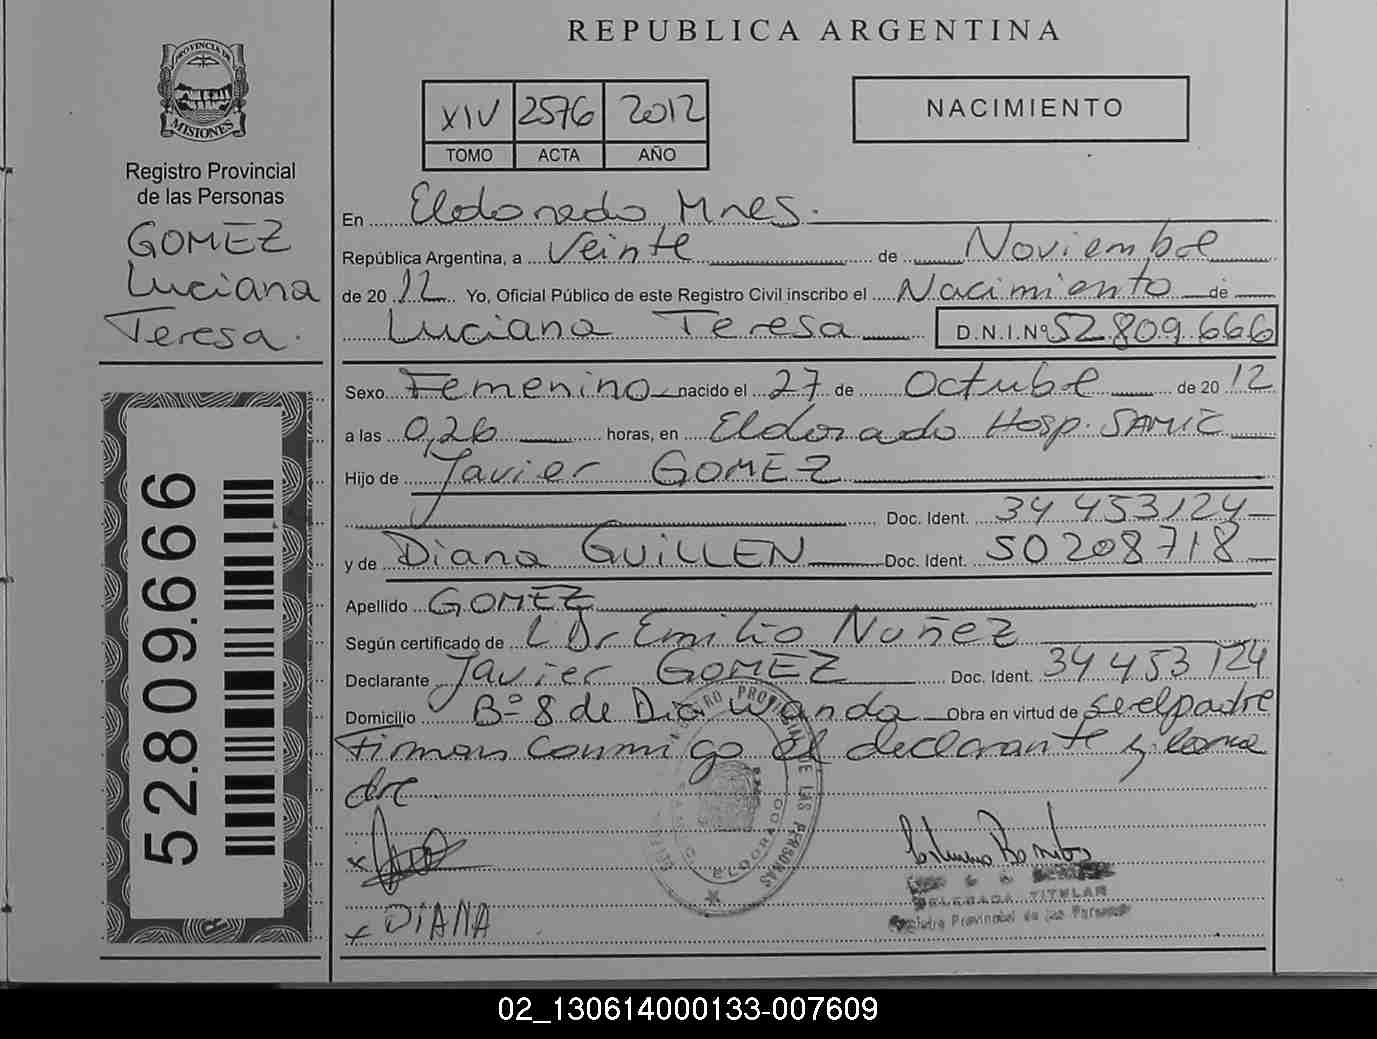 REPUBLICA ARGENTINA
PROVINCIA DE
MISIONES
Registro Provincial
de las Personas
GOMEZ
Luciana
Teresa.
52.809.666
XIV 2576 2012
TOMO ACTA AÑO
NACIMIENTO
En Eldorado Mnes.
República Argentina, a Veinte de Noviembre
de 20 12 Yo, Oficial Público de este Registro Civil inscribo el Nacimiento de
Luciana Teresa D.N.I.Nº 52.809.666
Sexo Femenino nacido el 27 de Octubre de 20 12
a las 0,26 horas, en Eldorado Hosp. SAMIC
Hijo de Javier GOMEZ
Doc. Ident. 34 453124
y de Diana GUILLEN Doc. Ident. 50208718
Apellido GOMEZ
Según certificado de Dr Emilio Nuñez
Declarante Javier GOMEZ Doc. Ident. 34 453 124
Domicilio Bº 8 de Dic wanda Obra en virtud de ser el padre
Firman conmigo el declarante y la ma
dre
x
x DIANA
DE LAS PERSONAS
ELDORADO
DELEGADA TITULAR
Registro Provincial de las Personas
02_130614000133-007609